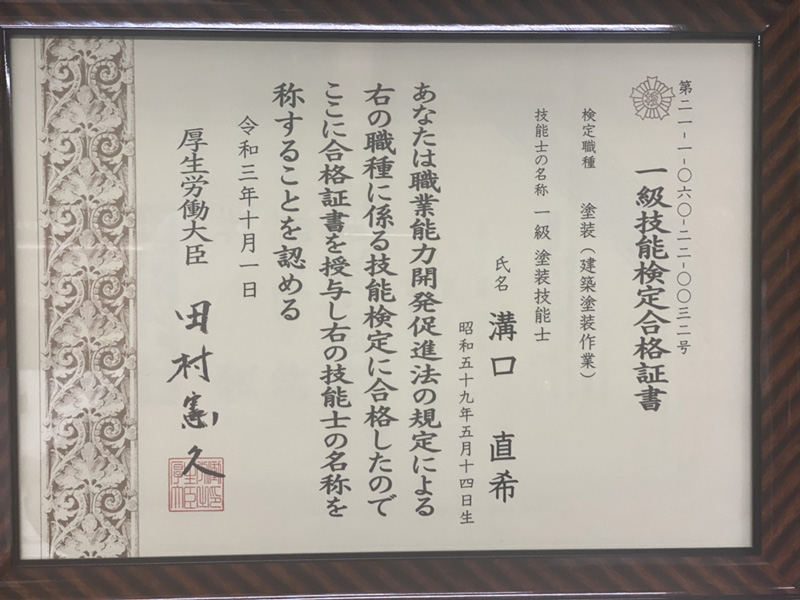 第二一-一-〇六〇-二二-〇〇三二号
一級技能検定合格証書
検定職種 塗装(建築塗装作業)
技能士の名称 一級 塗装技能士
氏名 溝口 直希
昭和五十九年五月十四日生
あなたは職業能力開発促進法の規定による
右の職種に係る技能検定に合格したので
ここに合格証書を授与し右の技能士の名称を
称することを認める
令和三年十月一日
厚生労働大臣 田村憲久